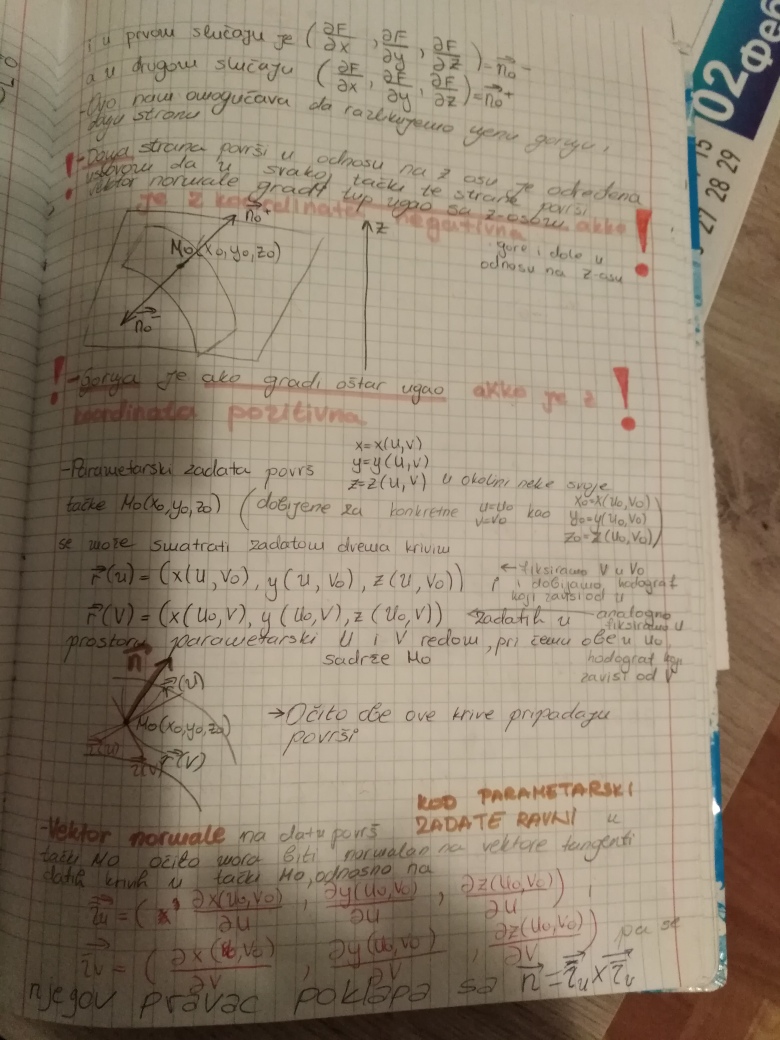 i u prvom slučaju je (∂F/∂x, ∂F/∂y, ∂F/∂z) = n₀⃗⁻
a u drugom slučaju (∂F/∂x, ∂F/∂y, ∂F/∂z) = n₀⃗⁺
-Ovo nam omogućava da razlikujemo njenu gornju i
donju stranu
! -Donja strana površi u odnosu na z osu je određena
! uslovom da u svakoj tački te strane površi
vektor normale gradi tup ugao sa z-osom, akko
je z koordinata negativna !
n₀⃗⁺
z
M₀(x₀,y₀,z₀)
gore i dole u
odnosu na z-osu
n₀⃗⁻
! -Gornja je ako gradi oštar ugao akko je z !
koordinata pozitivna
x=x(u,v)
-Parametarski zadata površ y=y(u,v)
z=z(u,v) u okolini neke svoje
tačke M₀(x₀,y₀,z₀) (dobijene za konkretne u=u₀ v=v₀ kao x₀=x(u₀,v₀)
y₀=y(u₀,v₀)
z₀=z(u₀,v₀))
se može smatrati zadatom dvema krivim
r⃗(u) = (x(u,v₀), y(u,v₀), z(u,v₀)) i ← fiksiramo v u v₀
i dobijamo hodograf
koji zavisi od u
r⃗(v) = (x(u₀,v), y(u₀,v), z(u₀,v)) ← zadatih u analogno
fiksiramo u
prostoru parametarski u i v redom, pri čemu obe u u₀
sadrže M₀ hodograf koji
zavisi od v
n⃗
r⃗(u)
M₀(x₀,y₀,z₀)
→Očito obe ove krive pripadaju
površi
τ⃗(u) r⃗(v)
τ⃗(v)
KOD PARAMETARSKI
ZADATE RAVNI
-Vektor normale na datu površ u
tački M₀ očito mora biti normalan na vektore tangenti
datih krivih u tački M₀, odnosno na
τ⃗ᵤ = (∂x(u₀,v₀)/∂u, ∂y(u₀,v₀)/∂u, ∂z(u₀,v₀)/∂u) i
τ⃗ᵥ = (∂x(u₀,v₀)/∂v, ∂y(u₀,v₀)/∂v, ∂z(u₀,v₀)/∂v) pa se
njegov pravac poklapa sa n⃗ = τ⃗ᵤ × τ⃗ᵥ
02 Феб
15
27 28 29